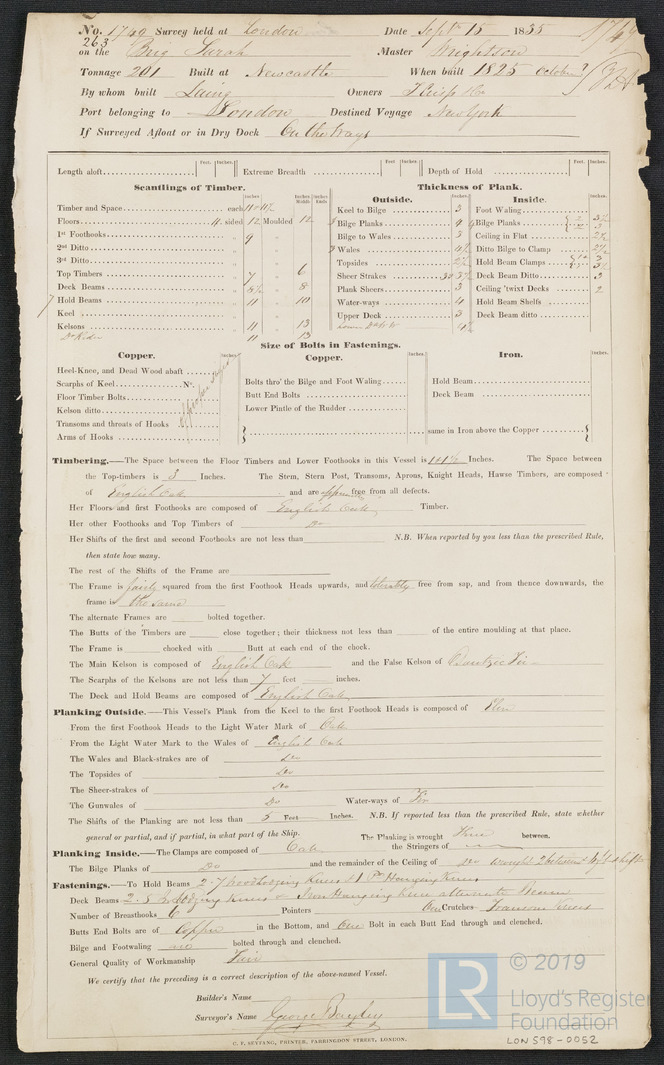 No. 1749 Survey held at London Date Sept 15 1835 1749
263
on the Brig Sarah Master Wrightson
Tonnage 201 Built at Newcastle When built 1825 October
By whom built Laing Owners
Port belonging to London Destined Voyage New York
If Surveyed Afloat or in Dry Dock On the Ways
Feet. Inches. Feet. Inches. Feet. Inches.
Length aloft Extreme Breadth Depth of Hold
Scantlings of Timber. Thickness of Plank.
Inches. Inches Middle Inches Ends Outside. Inches. Inside. Inches.
Timber and Space each Keel to Bilge 3 Foot Waling
Floors 11 sided 12 Moulded 12 Bilge Planks Bilge Planks
1st Foothooks 9 Bilge to Wales 3 Ceiling in Flat
2nd Ditto " " Wales Ditto Bilge to Clamp
3rd Ditto " " Topsides Hold Beam Clamps
Top Timbers 7 6 Sheer Strakes Deck Beam Ditto 3
Deck Beams 8 Plank Sheers 3 Ceiling 'twixt Decks 2
Hold Beams 11 10 Water-ways 4 Hold Beam Shelfs
Keel Upper Deck 3 Deck Beam ditto
Kelsons 11 13
Do Rider 11 13
Size of Bolts in Fastenings.
Copper. Inches. Copper. Inches. Iron. Inches.
Heel-Knee, and Dead Wood abaft
Scarphs of Keel No. Bolts thro' the Bilge and Foot Waling Hold Beam
Floor Timber Bolts Butt End Bolts Deck Beam
Kelson ditto Lower Pintle of the Rudder
Transoms and throats of Hooks same in Iron above the Copper
Arms of Hooks
Timbering.—The Space between the Floor Timbers and Lower Foothooks in this Vessel is Inches. The Space between
the Top-timbers is 3 Inches. The Stem, Stern Post, Transoms, Aprons, Knight Heads, Hawse Timbers, are composed
of English Oak and are free from all defects.
Her Floors and first Foothooks are composed of English Oak Timber.
Her other Foothooks and Top Timbers of Do
Her Shifts of the first and second Foothooks are not less than N.B. When reported by you less than the prescribed Rule,
then state how many.
The rest of the Shifts of the Frame are
The Frame is fairly squared from the first Foothook Heads upwards, and tolerably free from sap, and from thence downwards, the
frame is the same
The alternate Frames are bolted together.
The Butts of the Timbers are close together; their thickness not less than of the entire moulding at that place.
The Frame is chocked with Butt at each end of the chock.
The Main Kelson is composed of English Oak and the False Kelson of Dantzic Fir
The Scarphs of the Kelsons are not less than 7 feet inches.
The Deck and Hold Beams are composed of English Oak
Planking Outside.—This Vessel's Plank from the Keel to the first Foothook Heads is composed of Elm
From the first Foothook Heads to the Light Water Mark of Oak
From the Light Water Mark to the Wales of English Oak
The Wales and Black-strakes are of Do
The Topsides of Do
The Sheer-strakes of Do
The Gunwales of Do Water-ways of Fir
The Shifts of the Planking are not less than 5 Feet Inches. N.B. If reported less than the prescribed Rule, state whether
general or partial, and if partial, in what part of the Ship. The Planking is wrought Three between.
Planking Inside.—The Clamps are composed of Oak the Stringers of
The Bilge Planks of Do and the remainder of the Ceiling of Do wrought 2 between
Fastenings.—To Hold Beams 2 Wood Lodging Knees & 1 Pr Hanging Knees
Deck Beams 2 Lodging Knees & Iron Hanging Knee alternate Beam
Number of Breasthooks 6 Pointers One Crutches Transom Knees
Butts End Bolts are of Copper in the Bottom, and One Bolt in each Butt End through and clenched.
Bilge and Footwaling no bolted through and clenched.
General Quality of Workmanship Fair
We certify that the preceding is a correct description of the above-named Vessel.
Builder's Name
Surveyor's Name George Bayley
C. F. SEYFANG, PRINTER, FARRINGDON STREET, LONDON.
LR © 2019
Lloyd's Register
Foundation
LON 598-0052